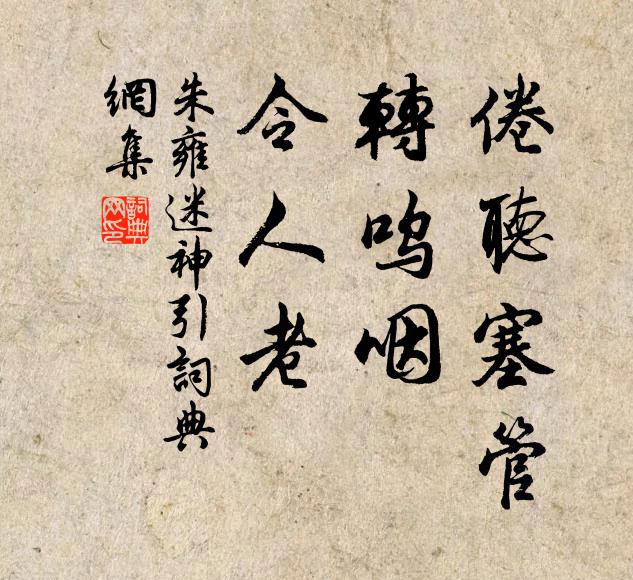 倦聽塞管
轉嗚咽
令人老
朱雍迷神引詞典
網集
詞典
网印